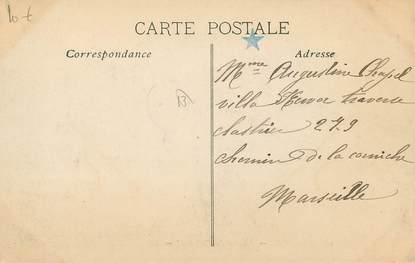 10€
CARTE POSTALE
Correspondance
Adresse
Mme Augustine Chapel
villa traverse
279
chemin de la corniche
Marseille
B